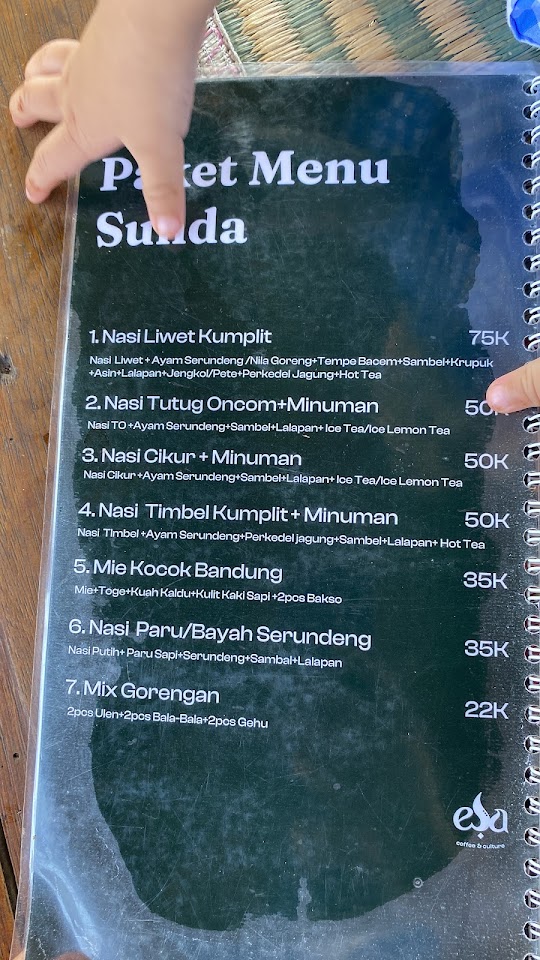 Paket Menu
Sunda
1. Nasi Liwet Kumplit 75K
Nasi Liwet + Ayam Serundeng /Nila Goreng+Tempe Bacem+Sambel+Krupuk
+Asin+Lalapan+Jengkol/Pete+Perkedel Jagung+Hot Tea
2. Nasi Tutug Oncom+Minuman 50K
Nasi TO +Ayam Serundeng+Sambel+Lalapan+ Ice Tea/Ice Lemon Tea
3. Nasi Cikur + Minuman 50K
Nasi Cikur+Ayam Serundeng+Sambel+Lalapan+ Ice Tea/Ice Lemon Tea
4. Nasi Timbel Kumplit + Minuman 50K
Nasi Timbel +Ayam Serundeng+Perkedel jagung+Sambel+Lalapan+ Hot Tea
5. Mie Kocok Bandung 35K
Mie+Toge+Kuah Kaldu+Kulit Kaki Sapi +2pos Bakso
6. Nasi Paru/Bayah Serundeng 35K
Nasi Putih+ Paru Sapi+Serundeng+Sambal+Lalapan
7. Mix Gorengan 22K
2pcs Ulen+2pcs Bala-Bala+2pcs Gehu
esa
coffee & culture